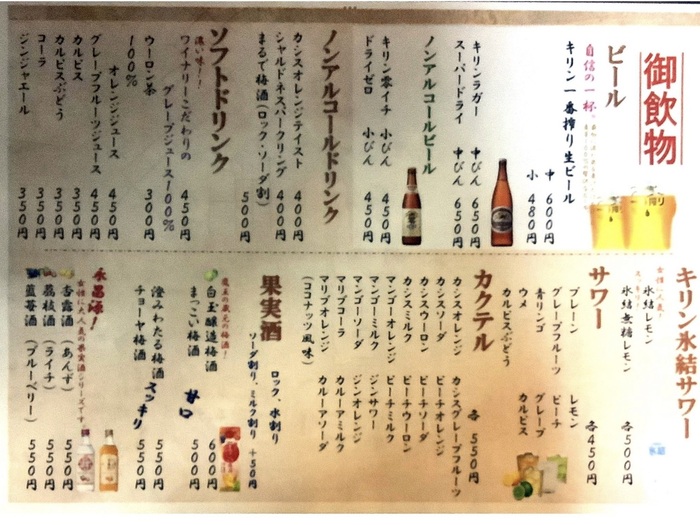 御飲物
ビール
自信の一杯。
キリン一番搾り生ビール
中 600円
小 480円
キリンラガー 中びん 650円
スーパードライ 中びん 650円
ノンアルコールビール
キリン零イチ 小びん 450円
ドライゼロ 小びん 450円
ノンアルコールドリンク
カシスオレンジテイスト 400円
シャルドネスパークリング 400円
まるで梅酒(ロック・ソーダ割)
500円
ソフトドリンク
濃い味!!
ワイナリーこだわりの
グレープジュース100% 450円
ウーロン茶 300円
100%
オレンジジュース 450円
グレープフルーツジュース 450円
カルピス 350円
カルピスぶどう 350円
コーラ 350円
ジンジャエール 350円
キリン氷結サワー
女性に大人気!
氷結レモン
スッキリ!
氷結無糖レモン
各500円
サワー
プレーン レモン
グレープフルーツ ピーチ
青リンゴ グレープ
ウメ カルピス
カルピスぶどう
各450円
カクテル
各550円
カシスオレンジ カシスグレープフルーツ
カシスソーダ ピーチオレンジ
カシスウーロン ピーチソーダ
カシスミルク ピーチウーロン
マンゴーオレンジ ピーチミルク
マンゴーミルク ジンサワー
マンゴーソーダ ジンオレンジ
マリブコーラ カルーアミルク
マリブオレンジ カルーアソーダ
(ココナッツ風味)
果実酒
ロック、水割り
ソーダ割り、ミルク割り +50円
魔王の蔵元の梅酒!
白玉醸造梅酒 600円
まっこい梅酒 甘口 500円
澄みわたる梅酒 550円
チョーヤ梅酒 スッキリ 550円
永昌源!
女性に大人気の果実酒シリーズです。
杏露酒(あんず) 550円
茘枝酒(ライチ) 550円
藍苺酒(ブルーベリー) 550円